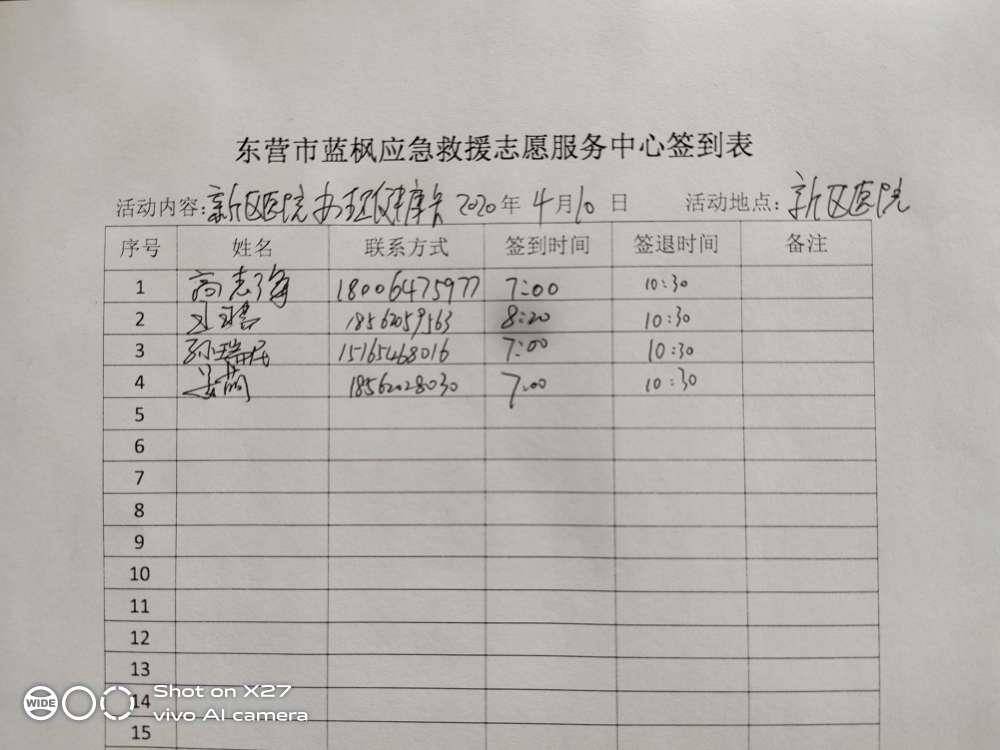 东营市蓝枫应急救援志愿服务中心签到表
活动内容:新区医院办理健康卡 2020年 4月10日 活动地点:新区医院
序号 姓名 联系方式 签到时间 签退时间 备注
1 高志海 18006475977 7:00 10:30
2 18562059563 8:20 10:30
3 孙瑞民 15165468016 7:00 10:30
4 18562028030 7:00 10:30
5
6
7
8
9
10
11
12
13
14
15
WIDE
Shot on X27
vivo AI camera